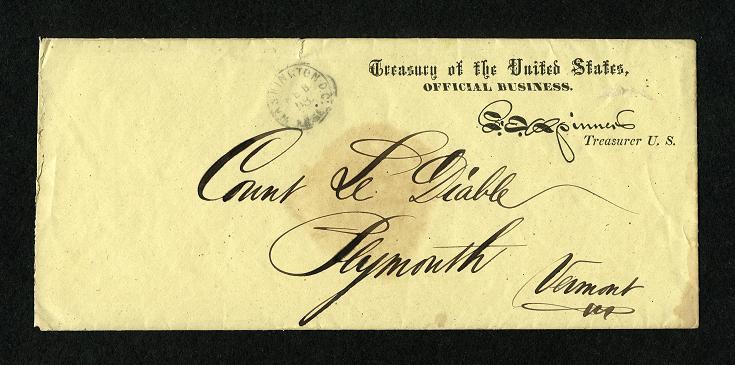 Treasury of the United States,
OFFICIAL BUSINESS.
F. E. Spinner
Treasurer U. S.
WASHINGTON D.C.
FEB
Count Le Diable
Plymouth
Vermont